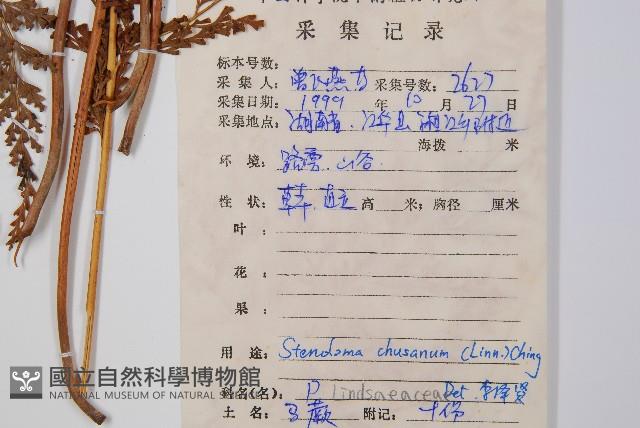 采集记录
标本号数:
采集人: 采集号数: 2627
采集日期: 1999 年 10 月 27 日
采集地点: 湖南省.江华县.湘江乡附近
海拨 米
环境: 路旁.山谷
性状: 草.直立 高 米; 胸径 厘米
叶:
花:
果:
用途: Stenoloma chusanum (Linn.) Ching
科名(名): P Lindsaeaceae Det. 李泽贤
土名: 乌蕨 附记: 十份
國立自然科學博物館
NATIONAL MUSEUM OF NATURAL